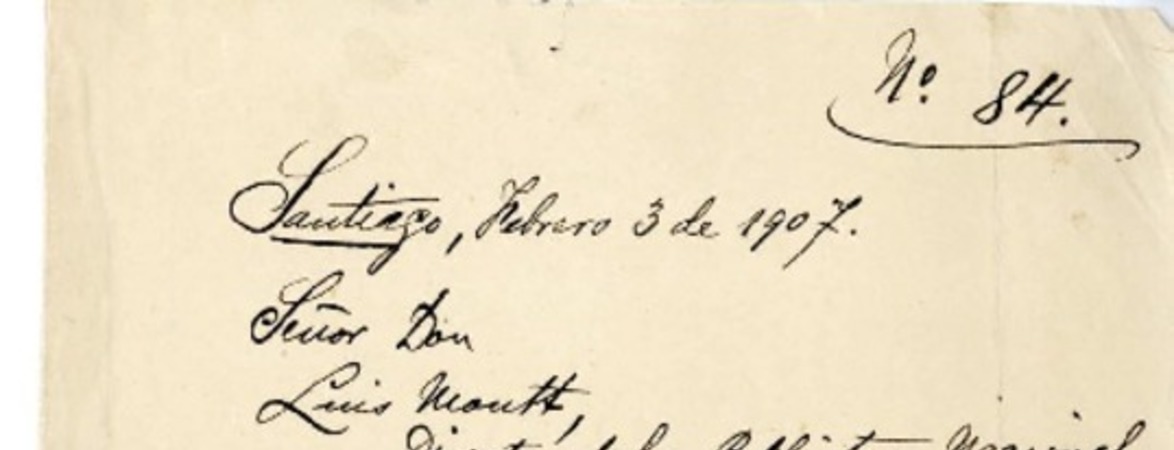 Nº 84.
Santiago, Febrero 3 de 1907.
Señor Don
Luis Montt,